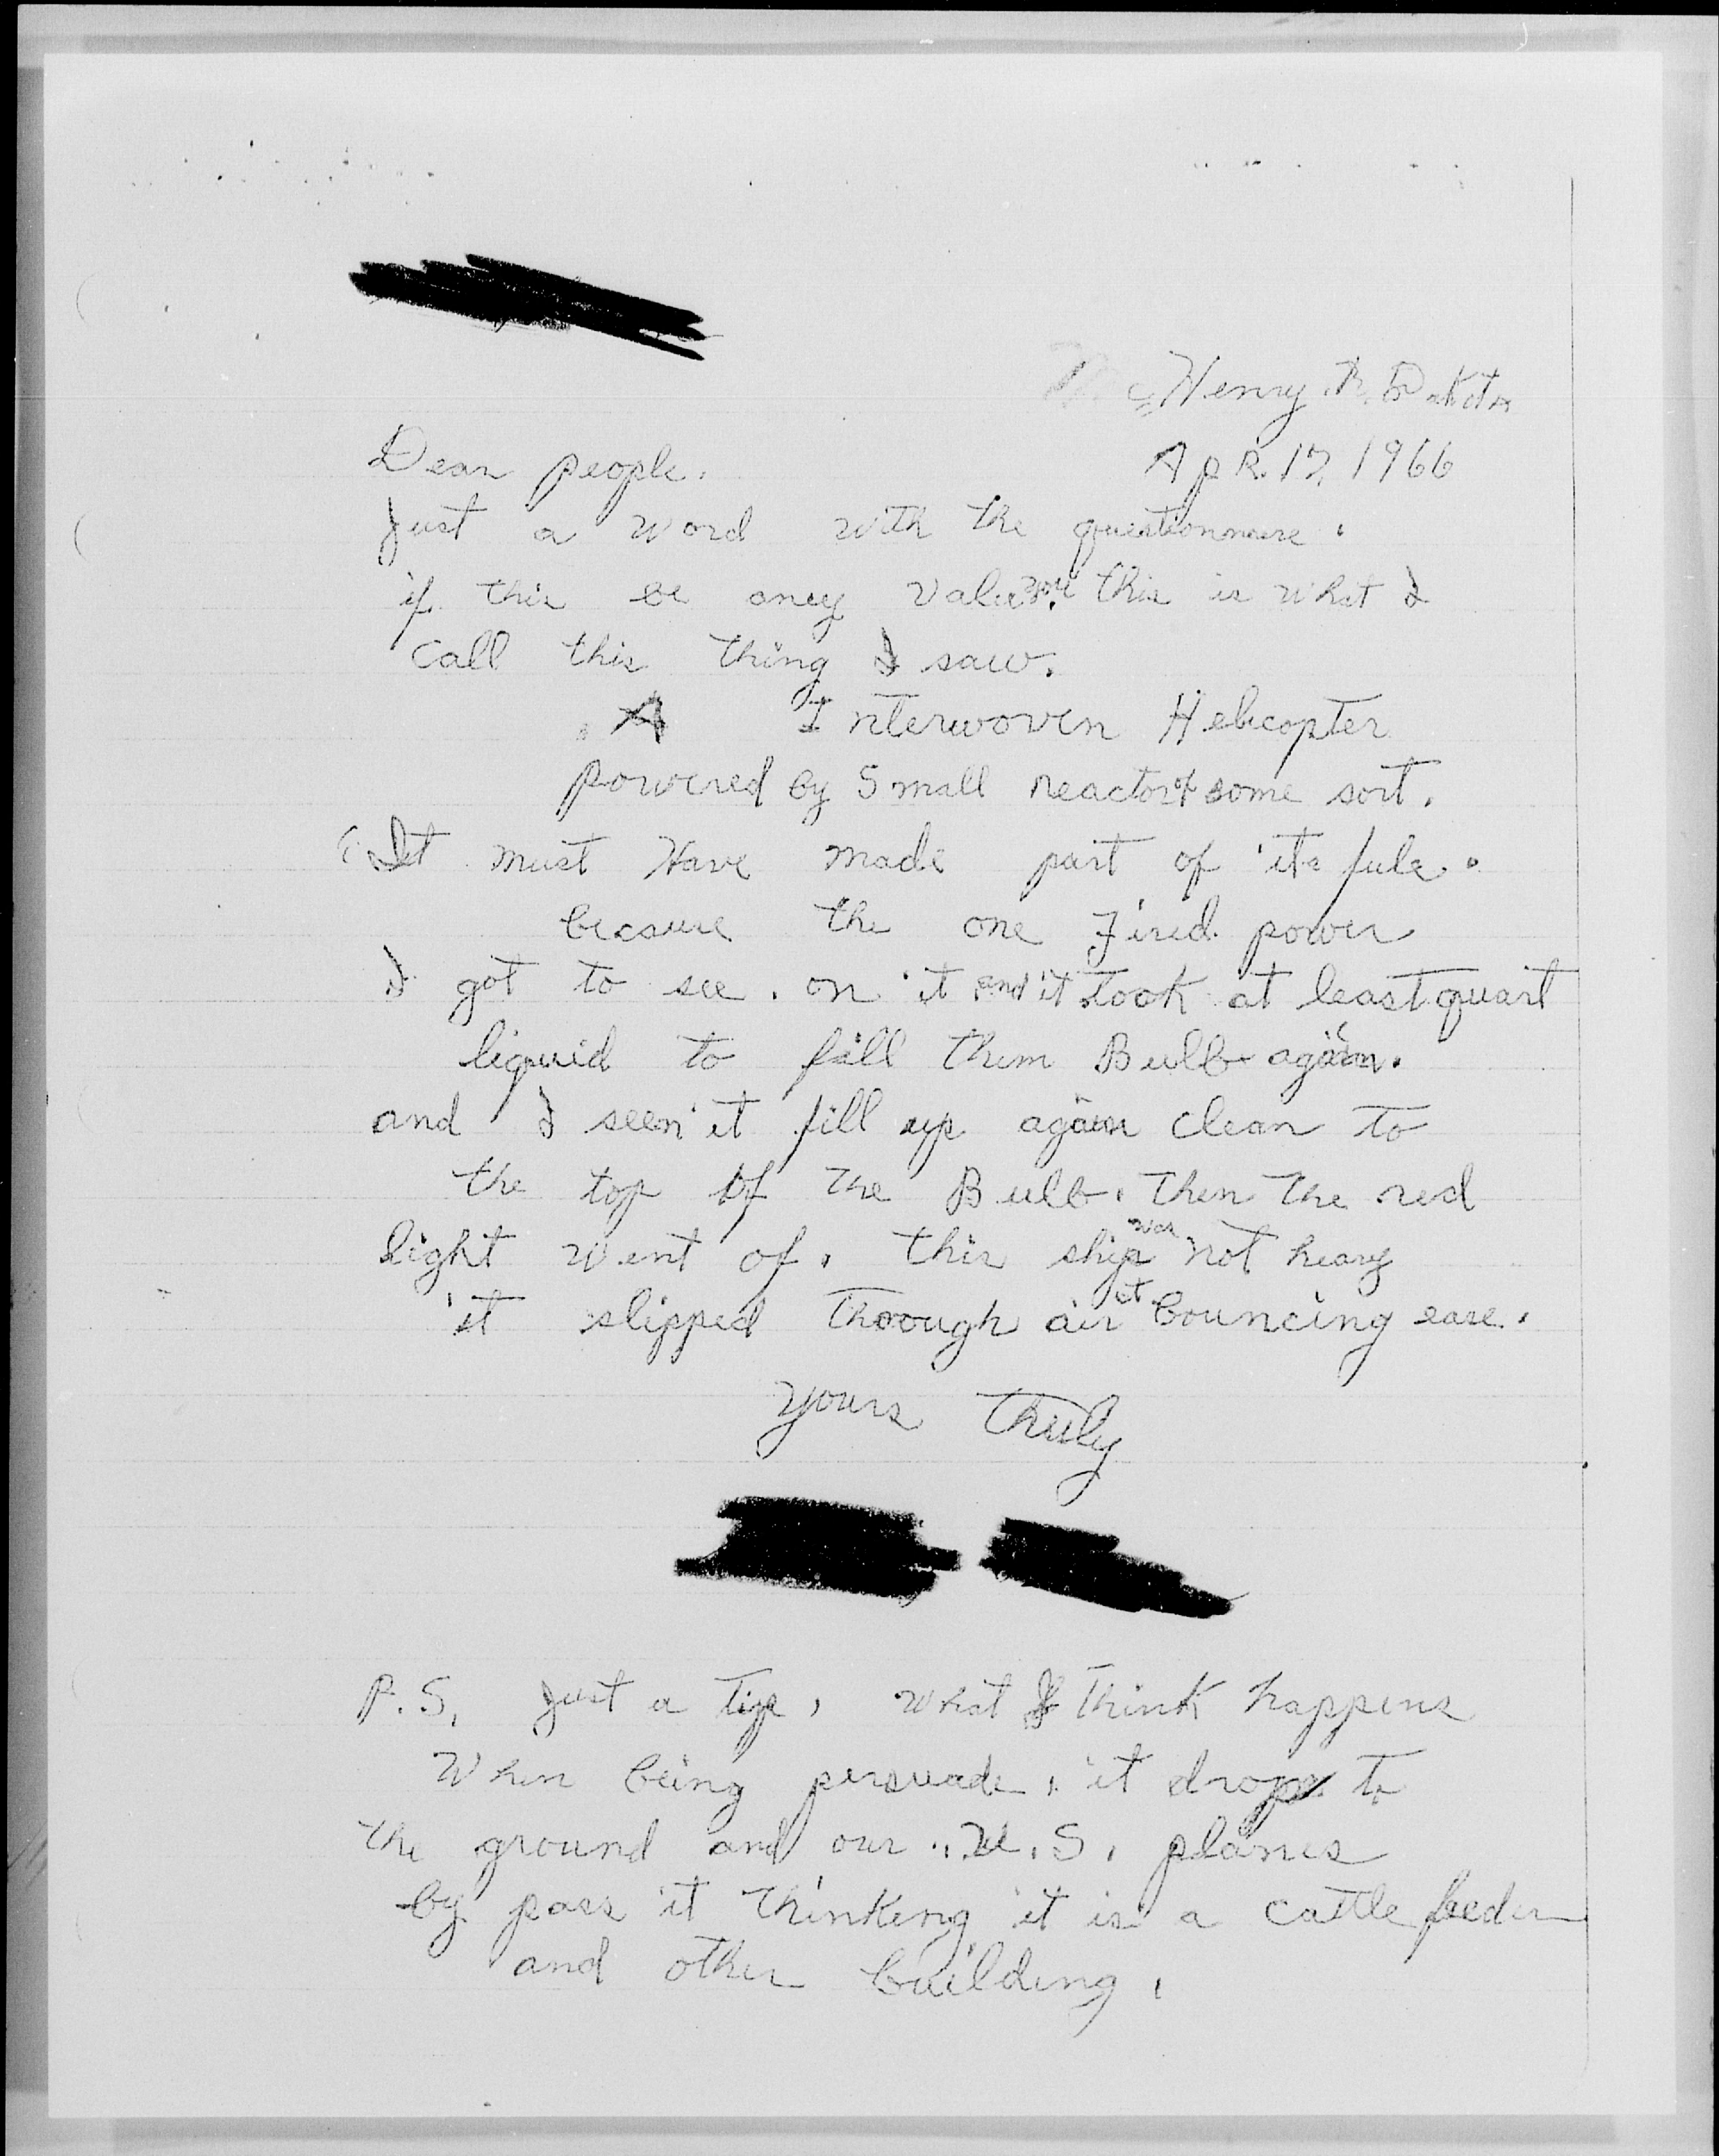 McHenry N. Dakota
Dear people. Apr. 17, 1966
Just a word with the questionnare.
if this be aney value you. this is what I
call this thing I saw.
A Interwoven Helicopter
powered by Small reactor of some sort.
It must Have made part of its fule.
becasure the one Fired power
I got to see. on it and it took at least quart
liquid to fill them Bulb again.
and I seen it fill up again clean to
the top of the Bulb. then the red
light went of. this ship was not heavy
it slipped thoough air at bouncing ease.
yours truly
P.S. Just a tip, what I think happens
When being persuade, it drops to
the ground and our U.S. planes
by pass it thinking it is a cattle feeder
and other building.